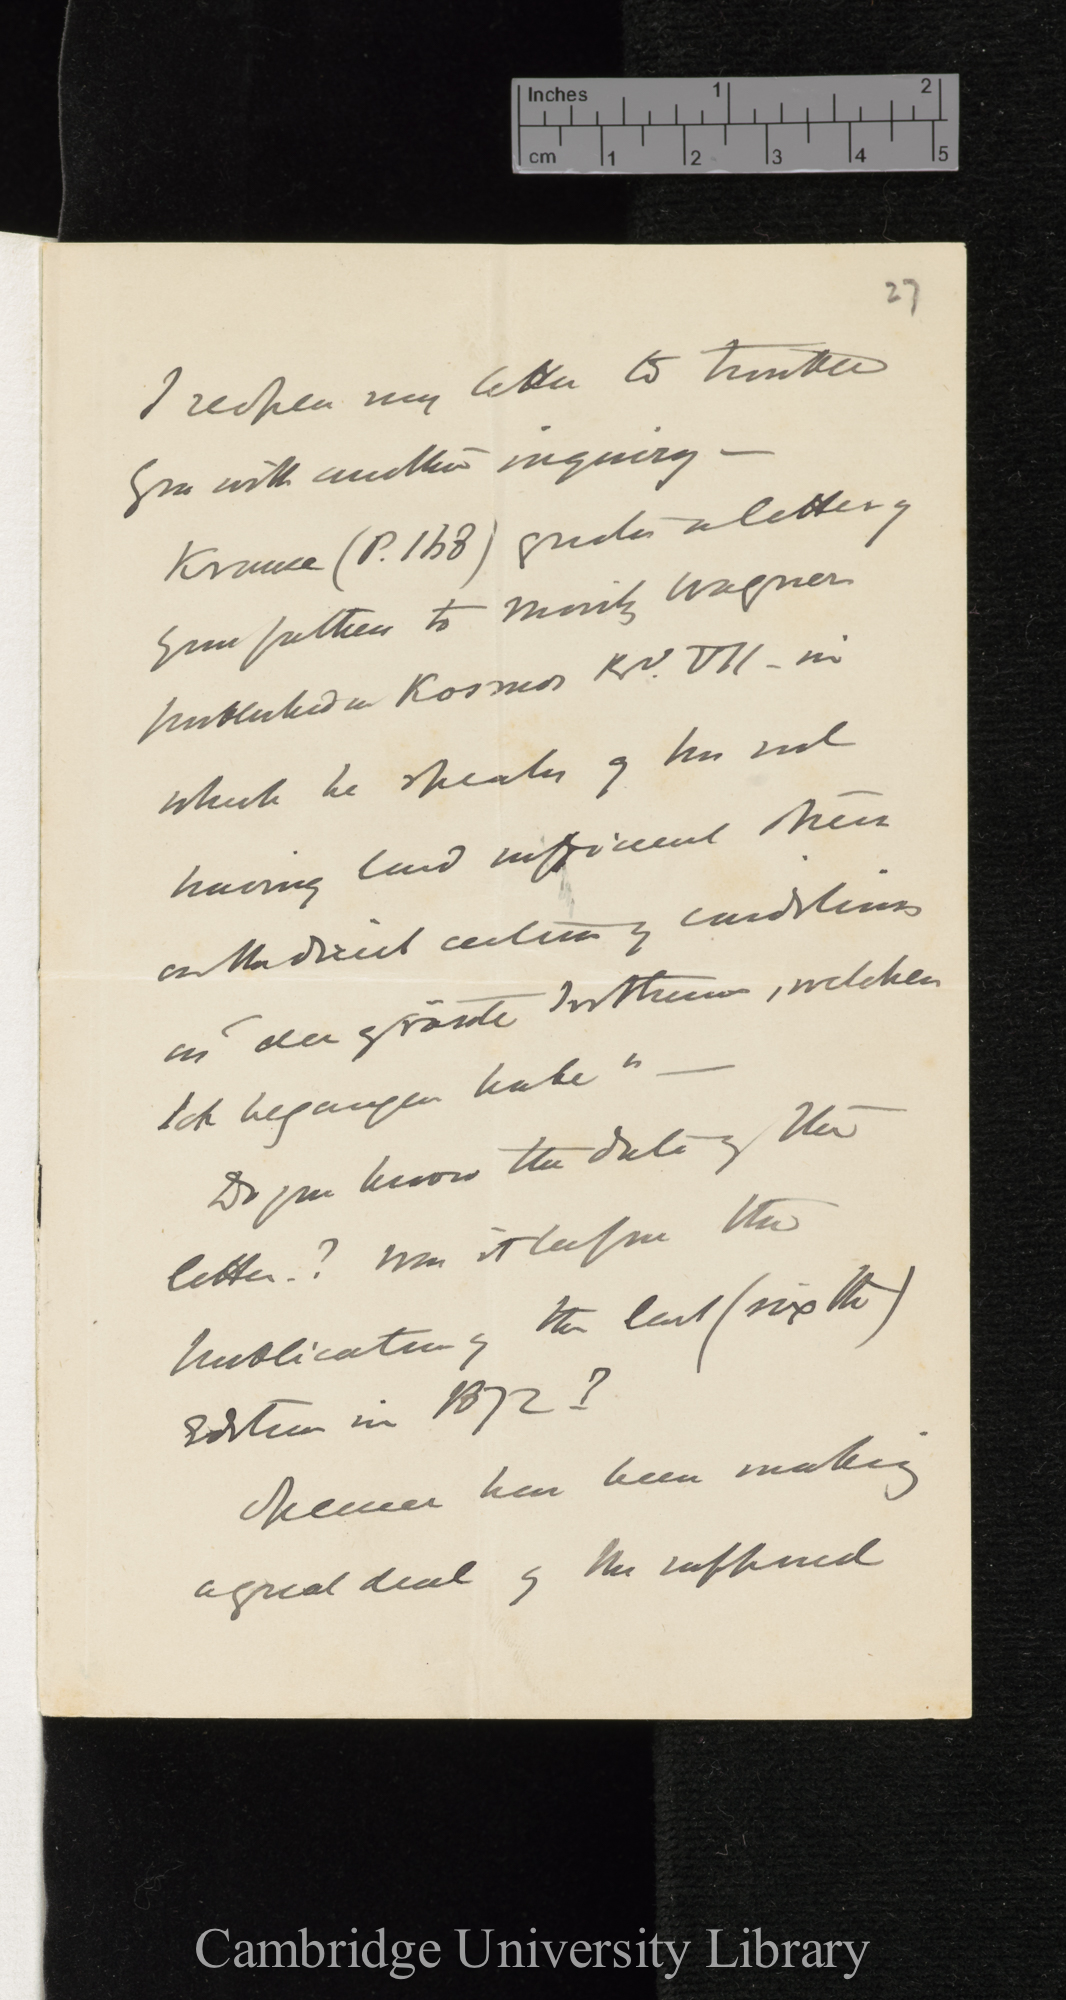 Inches 1 2
cm 1 2 3 4 5
27
I reopen my letter to trouble
you with another inquiry —
Krause (P. 168) quotes a letter of
your father to Moritz Wagner
published in Kosmos Bd. VII - in
which he speaks of his not
having laid sufficient stress
on the direct action of conditions
as "der grösste Irrthum, welchen
Ich begangen habe" —
Do you know the date of this
letter. ? Was it before the
publication of the last (sixth)
Edition in 1872 ?
Spencer has been making
a great deal of the supposed
Cambridge University Library